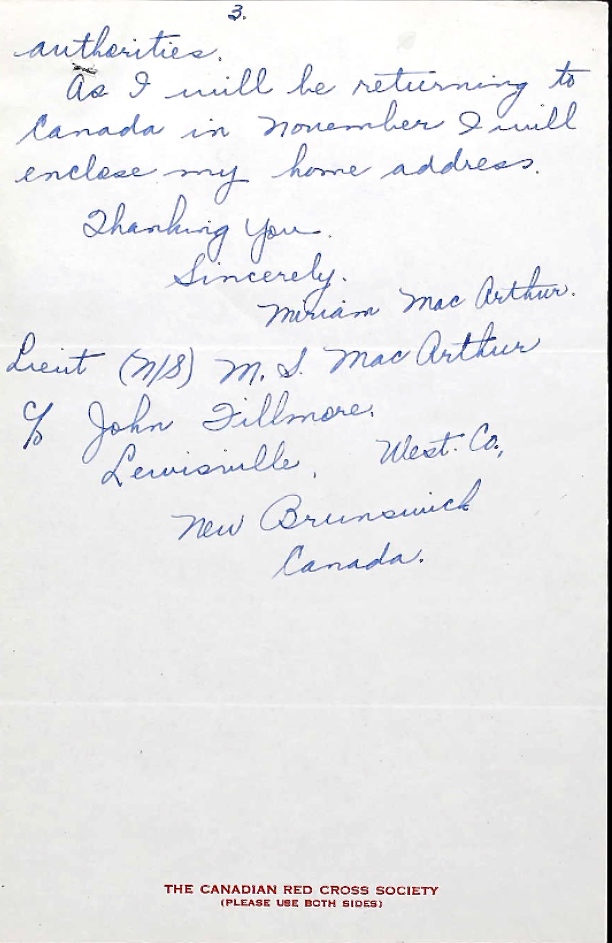 3.
authorities.
As I will be returning to
Canada in November I will
enclose my home address.
Thanking You.
Sincerely.
Miriam Mac Arthur.
Lieut (N/S) M. S. Mac Arthur
c/o John Fillmore.
Lewisville, West. Co.,
New Brunswick
Canada.
THE CANADIAN RED CROSS SOCIETY
(PLEASE USE BOTH SIDES)